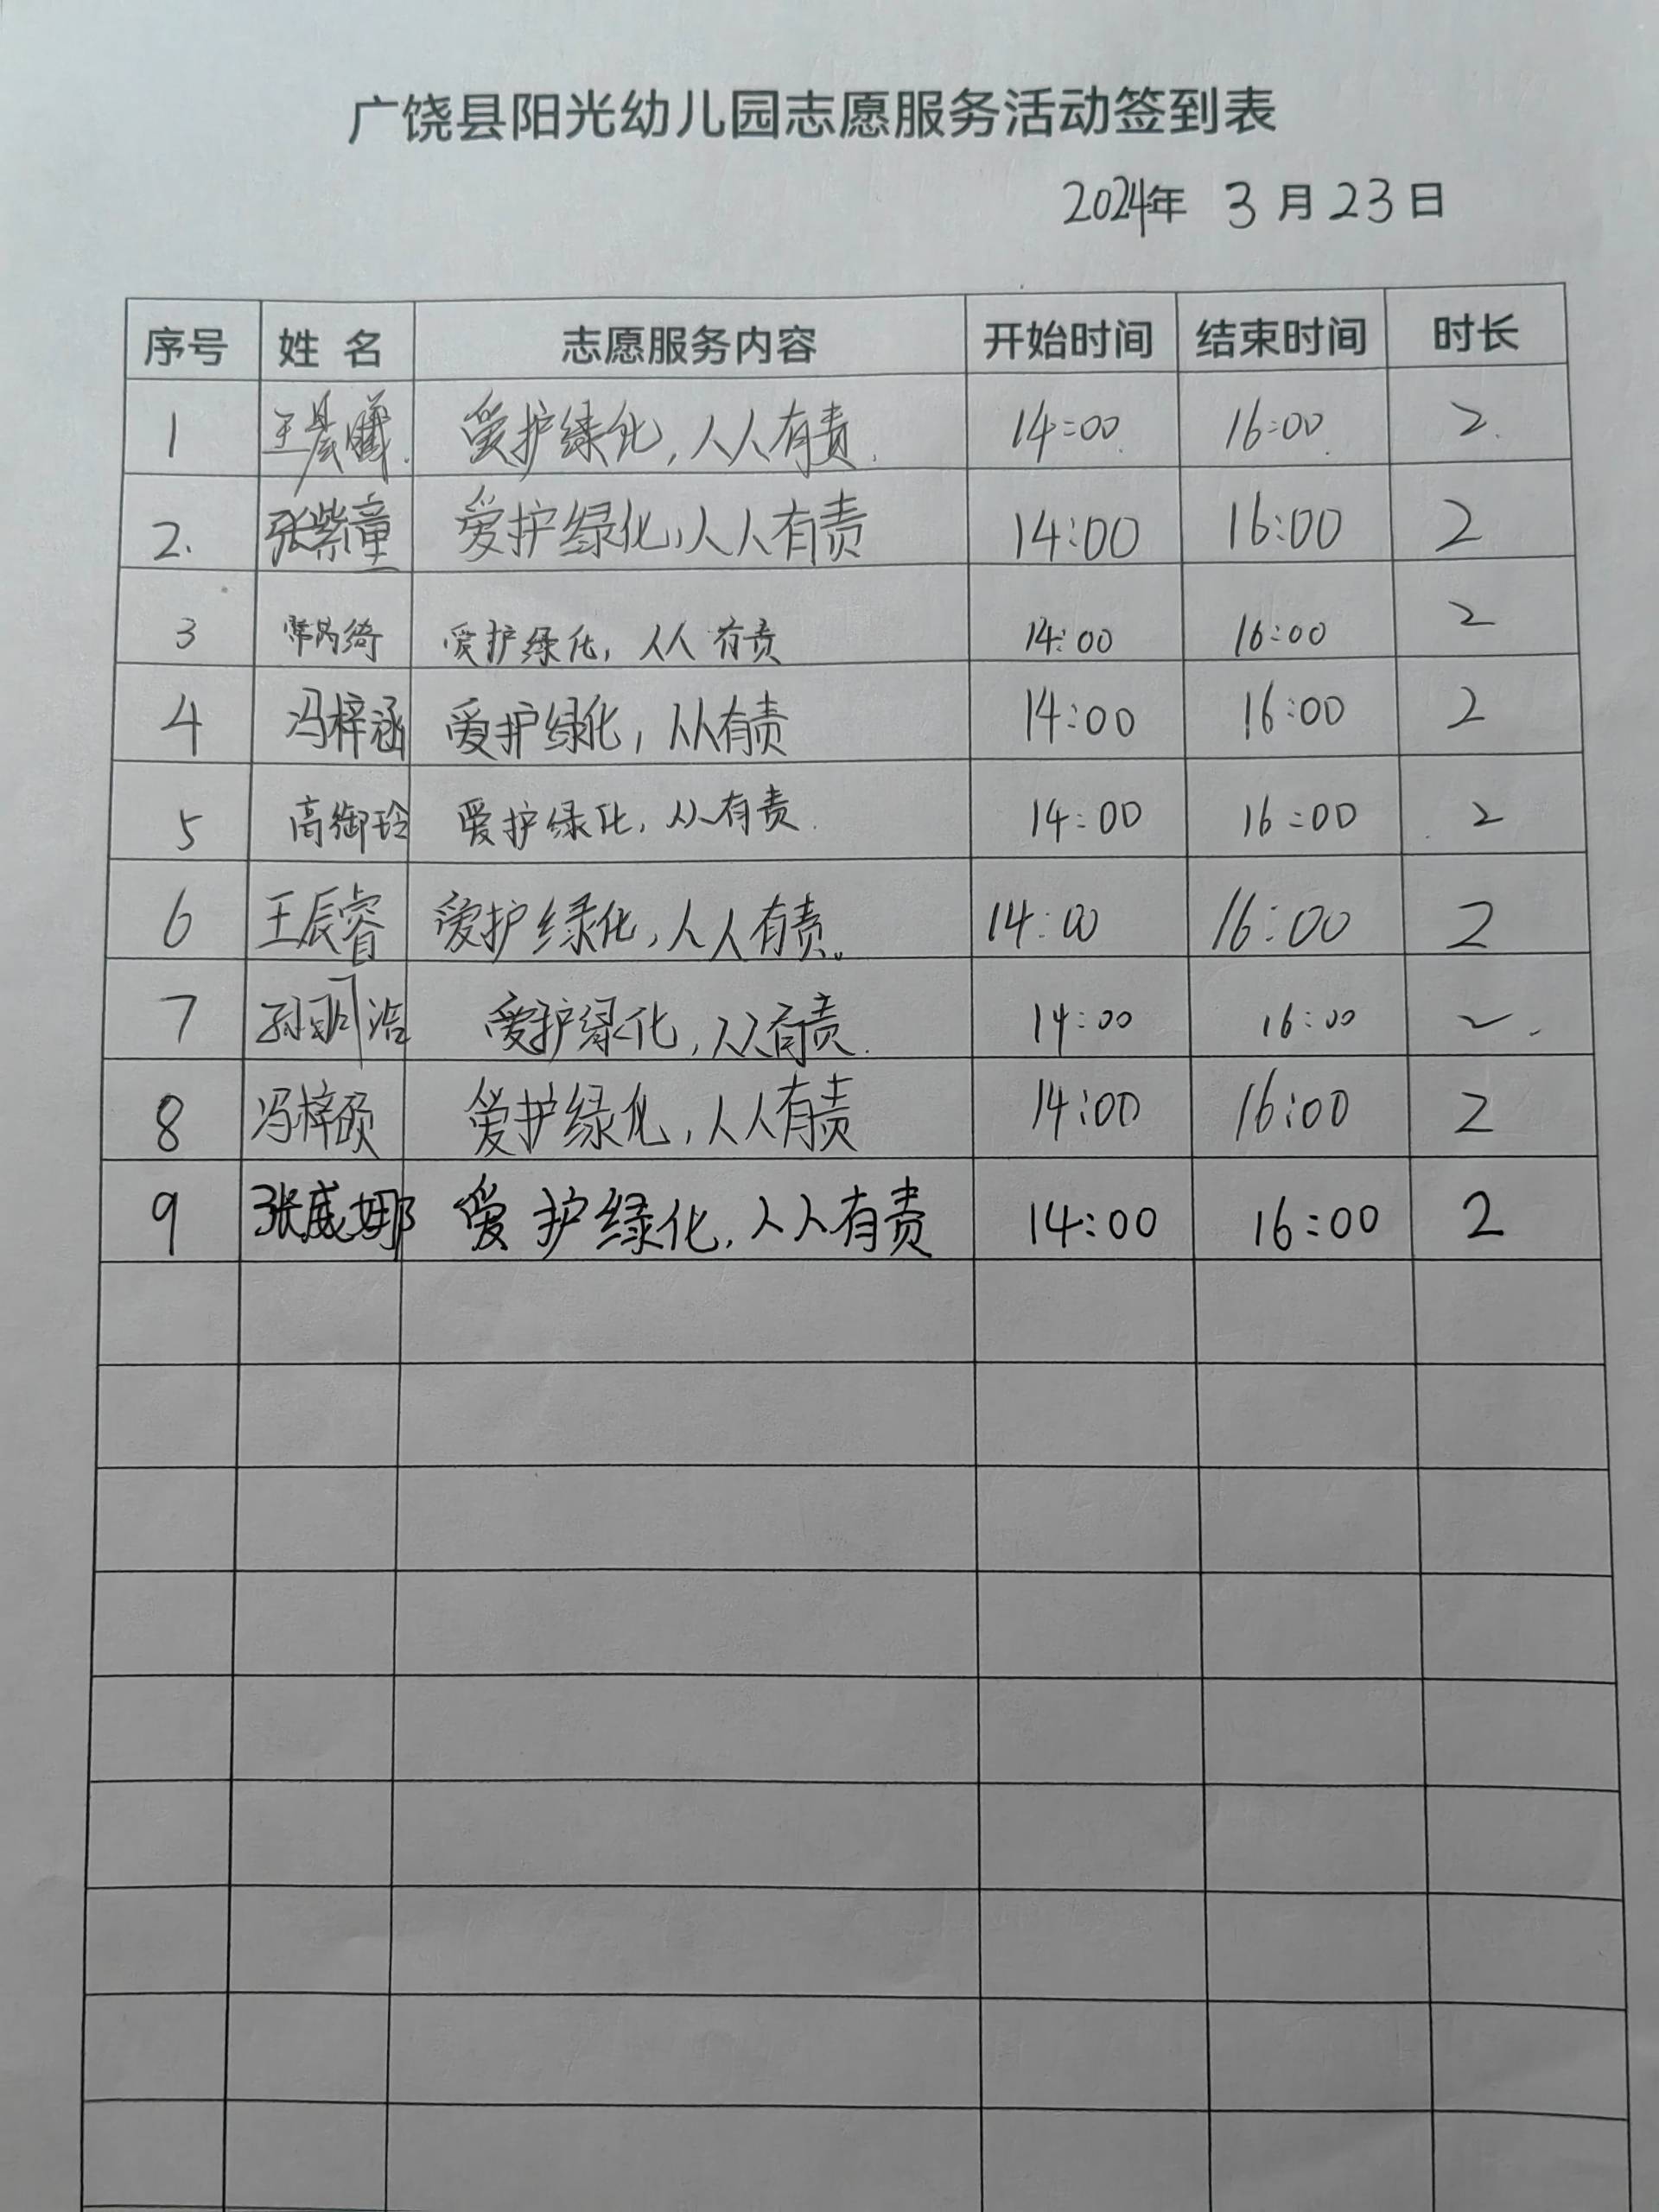 广饶县阳光幼儿园志愿服务活动签到表
2024年 3月23日
序号 姓名 志愿服务内容 开始时间 结束时间 时长
1 王晨曦. 爱护绿化,人人有责. 14:00 16:00 2.
2. 张紫童 爱护绿化,人人有责 14:00 16:00 2
3 爱护绿化,人人有责 14:00 16:00 2
4 冯梓涵 爱护绿化,人人有责 14:00 16:00 2
5 高御玲 爱护绿化,人人有责. 14:00 16:00 2
6 王辰睿 爱护绿化,人人有责。 14:00 16:00 2
7 爱护绿化,人人有责. 14:00 16:00 2.
8 冯梓硕 爱护绿化,人人有责 14:00 16:00 2
9 张威娜 爱护绿化,人人有责 14:00 16:00 2